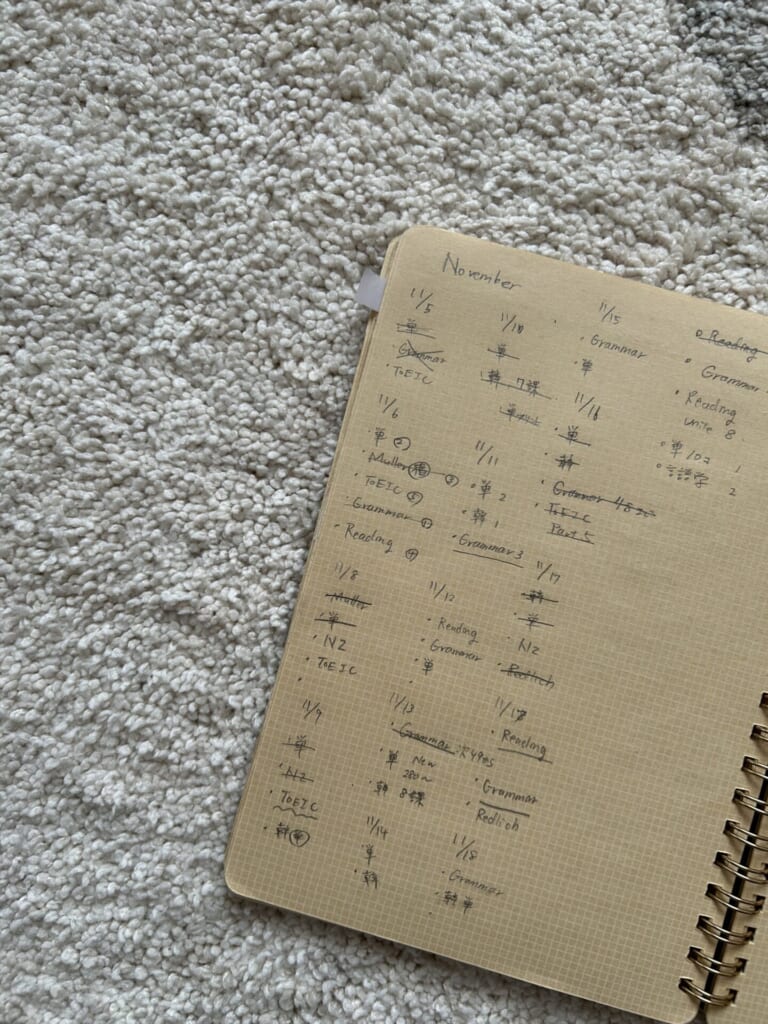 November
11/5
単
Grammar
・TOEIC
11/6
・単
・Muller
・TOEIC
・Grammar
・Reading
11/8
・Muller
・単
・N2
・TOEIC
11/9
・単
・N2
・TOEIC
・韓単
11/10
・単
・韓 7課
11/11
・単 2
・韓 1
・Grammar 3
11/12
・Reading
・Grammar
・単
11/13
・Grammar 次49から
・単 New
280〜
・韓 8課
11/14
・単
・韓
11/15
・Grammar
・単
11/16
・単
・韓
・Grammar 48
・TOEIC
Part 5
11/17
・韓
・単
・N2
・Redlich
11/18
・Reading
・Grammar
・Redlich
11/18
・Grammar
・韓単
Reading
Grammar
Reading
unite 8
単 1
言語学 2